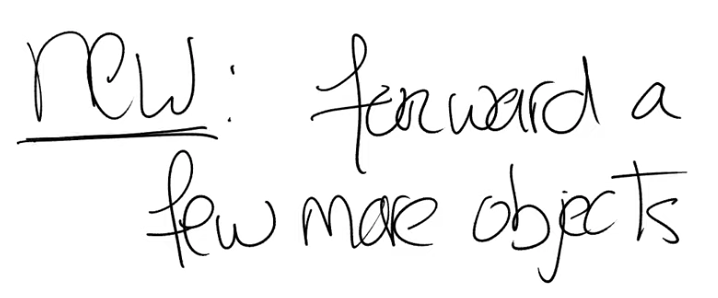 new: forward a
few more objects